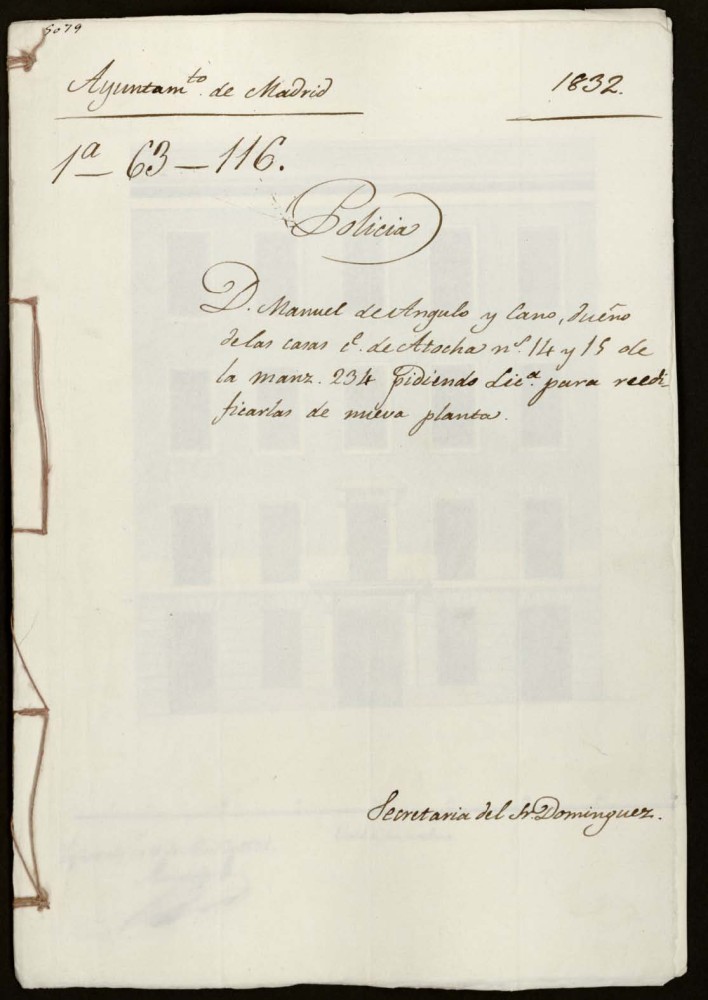 5079
Ayuntam.to de Madrid
1832.
1a - 63 - 116.
Policia
D. Manuel de Angulo y Cano, dueño
de las casas c.e de Atocha n.s 14 y 15 de
la manz. 234 pidiendo Lic.a para reedi-
ficarlas de nueva planta.
Secretaria del Sr. Dominguez.